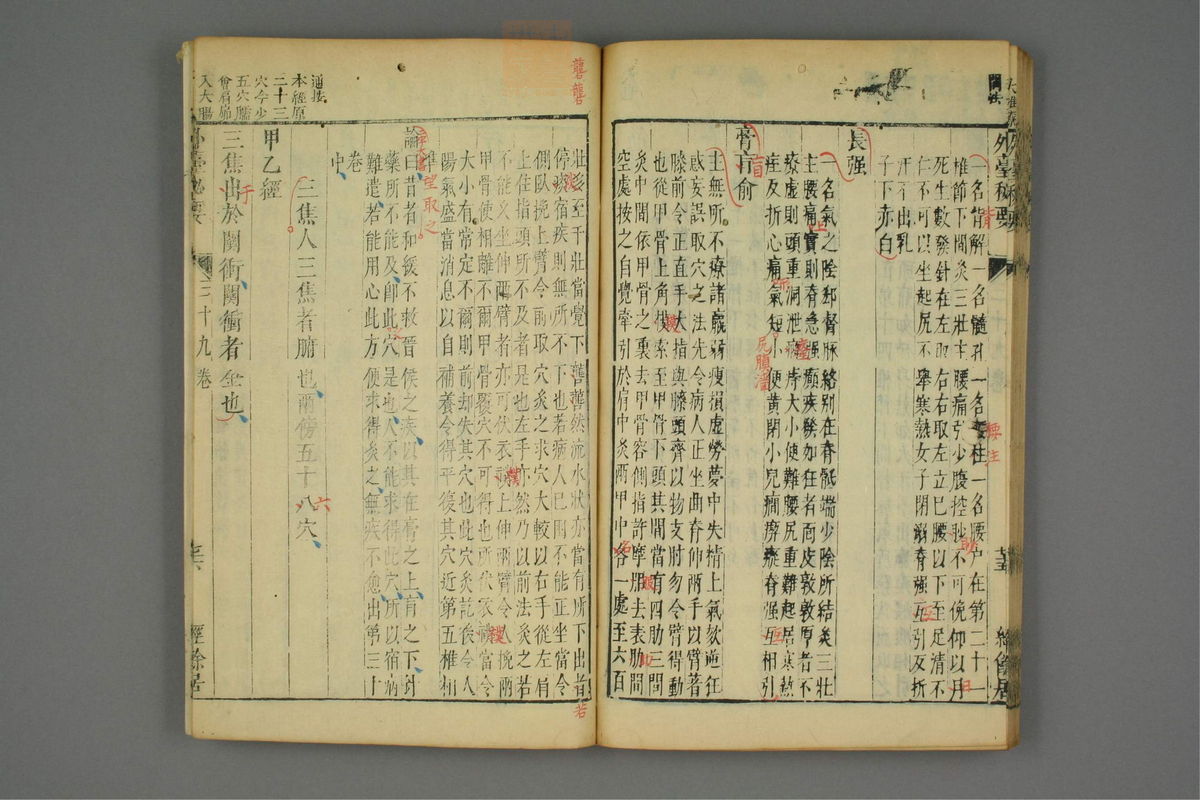 外臺秘要
一名背解一名髓孔一名腰柱一名腰户在第二十一
椎節下間灸三壯主腰痛引少腹控䏚不可俛仰以月
死生數發針在左取右右取左立已腰以下至足清不
仁不可以坐起尻不舉寒熱女子閉溺脊强互引反折
汗不出乳
子下赤白
長强
一名氣之陰郄督脉絡別在脊骶端少陰所結灸三壯
主腰痛實則脊急强癲疾發如狂者面皮敦敦厚者不
療虚則頭重洞泄癃痔大小便難腰尻重難起居寒熱
痓反折心痛氣短小便黄閉小兒癎瘈瘲脊强互相引
膏肓俞
主無所不療諸羸弱瘦損虚勞夢中失精上氣欬逆狂
惑妄誤取穴之法先令病人正坐曲脊伸兩手以臂著
膝前令正直手大指與膝頭齊以物支肘勿令臂得動
也從甲骨上角摸索至甲骨下頭其間當有四肋三間
灸中間依甲骨之裏去甲骨容側指許摩肕去表肋間
空處按之自覺牽引於肩中灸兩甲中各一處至六百
壯多至千壯當覺下礱礱然流水狀亦當有所下出者
停痰宿疾則無所不下也若病人已困不能正坐當令
側臥挽上臂令前取穴灸之求穴大較以右手從左肩
上住指頭所不及者是也左手亦然乃以前法灸之若
不能久坐伸兩臂者亦可伏衣上伸兩臂令人挽兩
甲骨使相離不爾甲骨覆穴不可得也所伏衣當令
大小有常定不爾則前却失其穴也此穴灸訖後令人
陽氣盛當消息以自補養令得平復其穴近第五椎相
準望取之
論曰昔者和緩不救晉侯之疾以其在膏之上肓之下針
藥所不能及即此穴是也人不能求得此穴所以宿病
難遣若能用心此方便求得灸之無疾不愈出第三十
卷
中
三焦人三焦者腑也兩傍五十八穴
甲乙經
三焦出於關衝關衝者金也
外臺秘要
三十九卷
經餘居
礱礱
通按
本經原
二十三
穴今少
五穴
入大腸